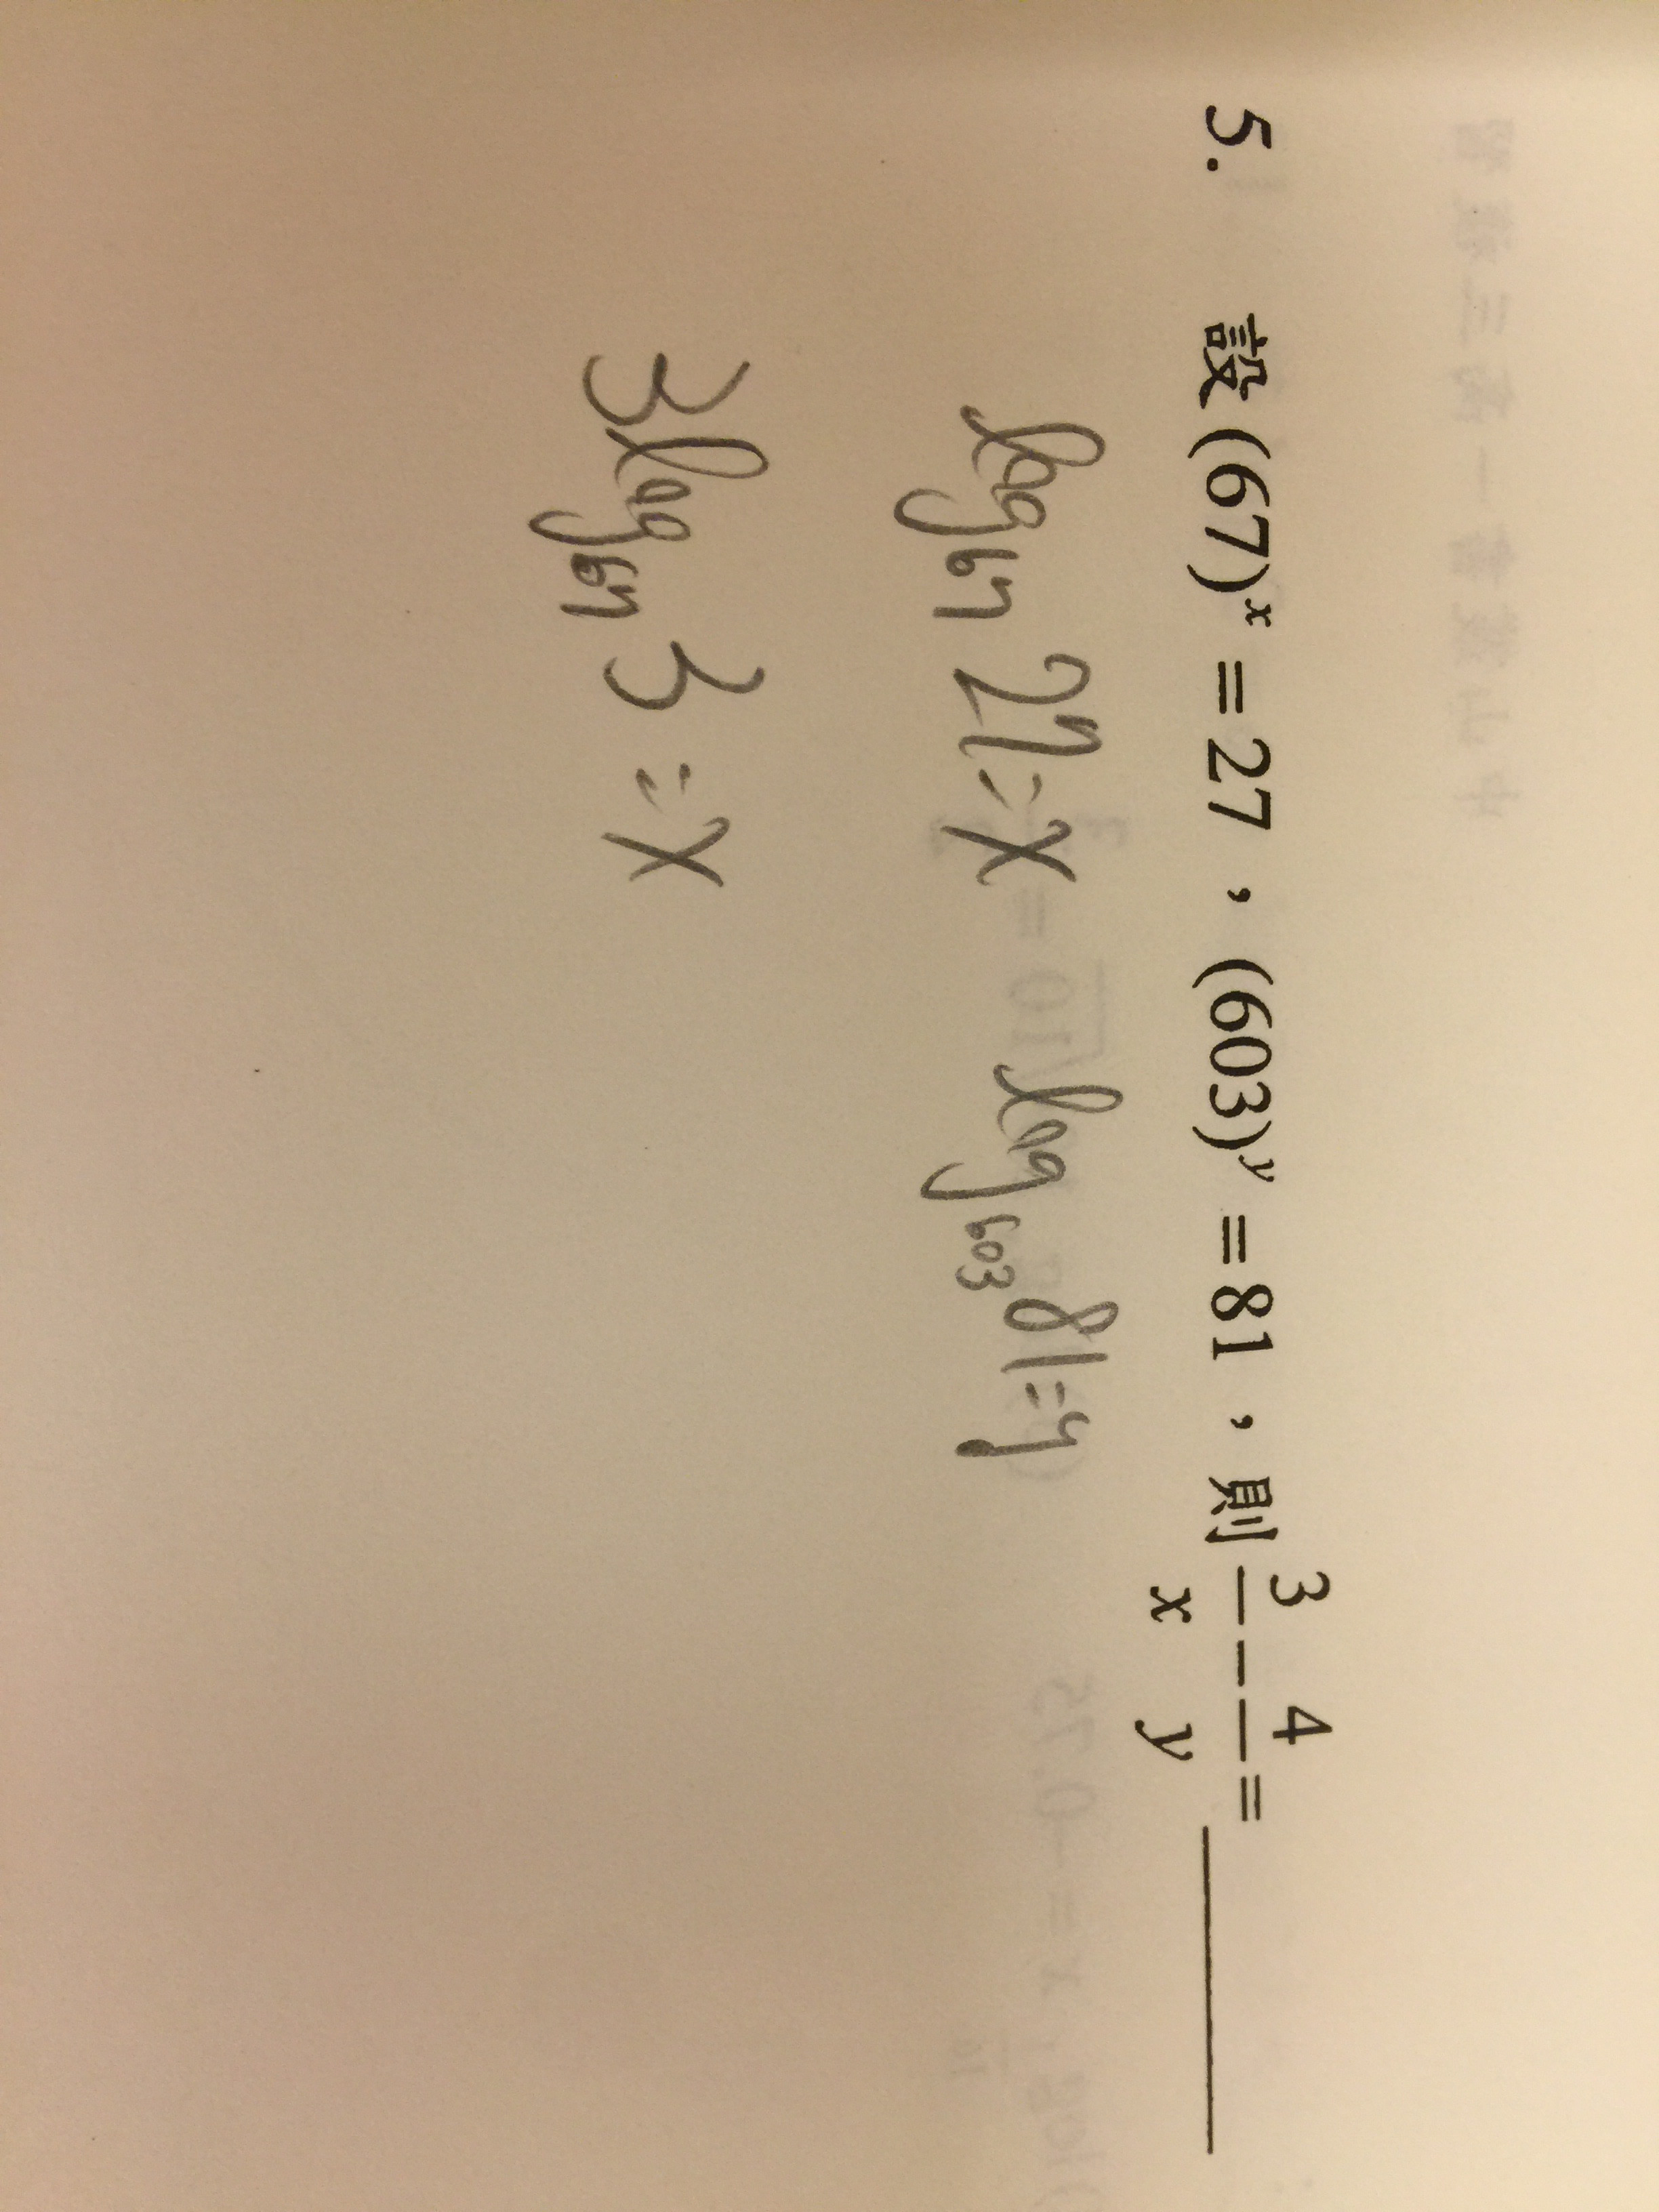 5. 設(67)^x = 27，(603)^y = 81，則 3/x − 4/y = ______
log₆₇ 27 = x log₆₀₃ 81 = y
3log₆₇ 3 = x